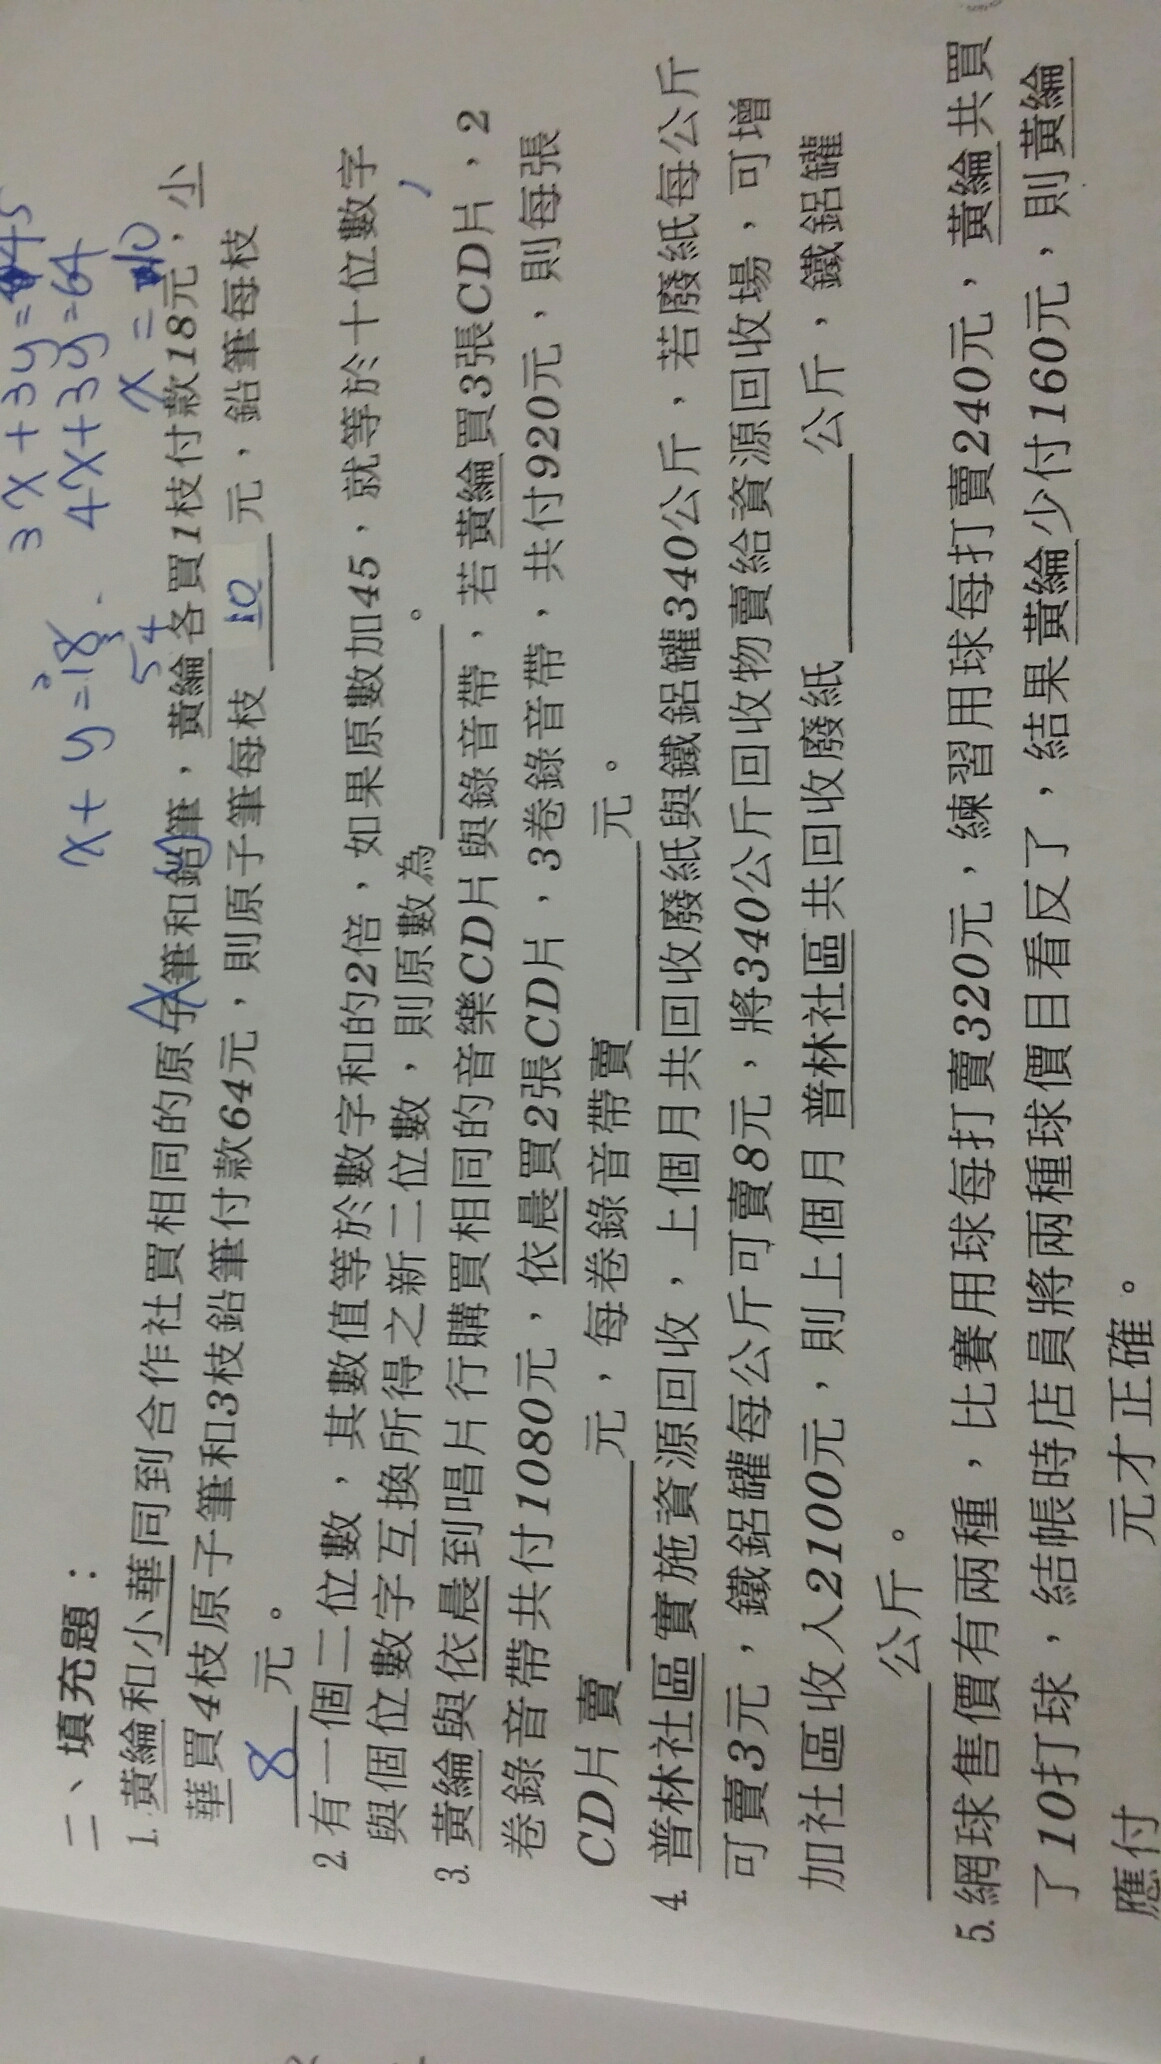 3x+3y=
45
x+y=18
3
4x+3y=64
54
x=10
二、填充題：
1. 黃綸和小華同到合作社買相同的原子筆和鉛筆，黃綸各買1枝付款18元，小
x
y
華買4枝原子筆和3枝鉛筆付款64元，則原子筆每枝 10 元，鉛筆每枝
8 元。
2. 有一個二位數，其數值等於數字和的2倍，如果原數加45，就等於十位數字
與個位數字互換所得之新二位數，則原數為　　　。
3. 黃綸與依晨到唱片行購買相同的音樂CD片與錄音帶，若黃綸買3張CD片，2
卷錄音帶共付1080元，依晨買2張CD片，3卷錄音帶，共付920元，則每張
CD片賣　　　元，每卷錄音帶賣　　　元。
4. 普林社區實施資源回收，上個月共回收廢紙與鐵鋁罐340公斤，若廢紙每公斤
可賣3元，鐵鋁罐每公斤可賣8元，將340公斤回收物賣給資源回收場，可增
加社區收入2100元，則上個月普林社區共回收廢紙　　　公斤，鐵鋁罐
　　　公斤。
5. 網球售價有兩種，比賽用球每打賣320元，練習用球每打賣240元，黃綸共買
了10打球，結帳時店員將兩種球價目看反了，結果黃綸少付160元，則黃綸
應付　　　元才正確。